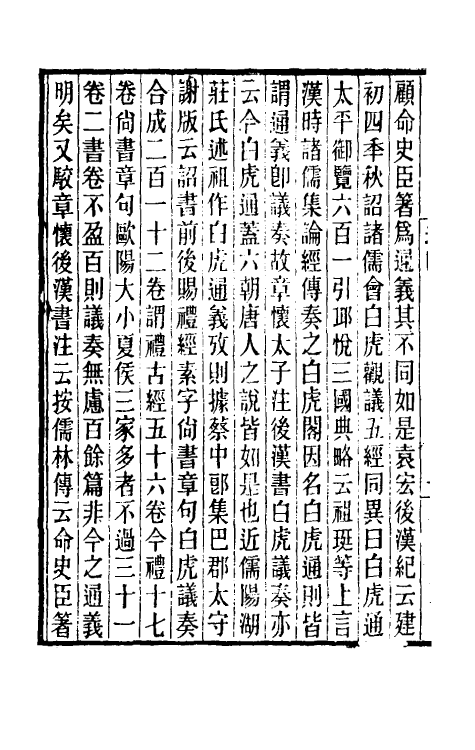 顧命史臣著爲通義其不同如是袁宏後漢紀云建
初四季秋詔諸儒會白虎觀議五經同異曰白虎通
太平御覽六百一引邱悅三國典略云祖珽等上言
漢時諸儒集論經傳奏之白虎閣因名白虎通則皆
謂通義卽議奏故章懷太子注後漢書白虎議奏亦
云今白虎通蓋六朝唐人之說皆如是也近儒陽湖
莊氏述祖作白虎通義攷則據蔡中郞集巴郡太守
謝版云詔書前後賜禮經素字尙書章句白虎議奏
合成二百一十二卷謂禮古經五十六卷今禮十七
卷尙書章句歐陽大小夏侯三家多者不過三十一
卷二書卷不盈百則議奏無慮百餘篇非今之通義
明矣又駮章懷後漢書注云按儒林傳云命史臣著